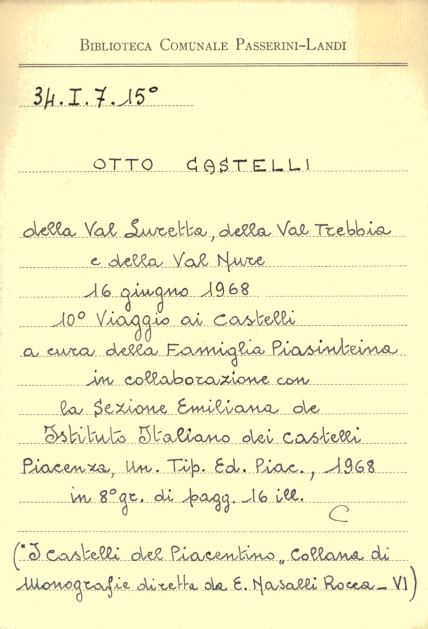 BIBLIOTECA COMUNALE PASSERINI-LANDI
34.I.7.15°
OTTO CASTELLI
della Val Luretta, della Val Trebbia
e della Val Nure
16 giugno 1968
10° Viaggio ai Castelli
a cura della Famiglia Piasinteina
in collaborazione con
la Sezione Emiliana de
Istituto Italiano dei Castelli
Piacenza, Un. Tip. Ed. Piac., 1968
in 8° gr. di pagg. 16 ill.
C
("I Castelli del Piacentino„ Collana di
Monografie diretta da E. Nasalli Rocca - VI)